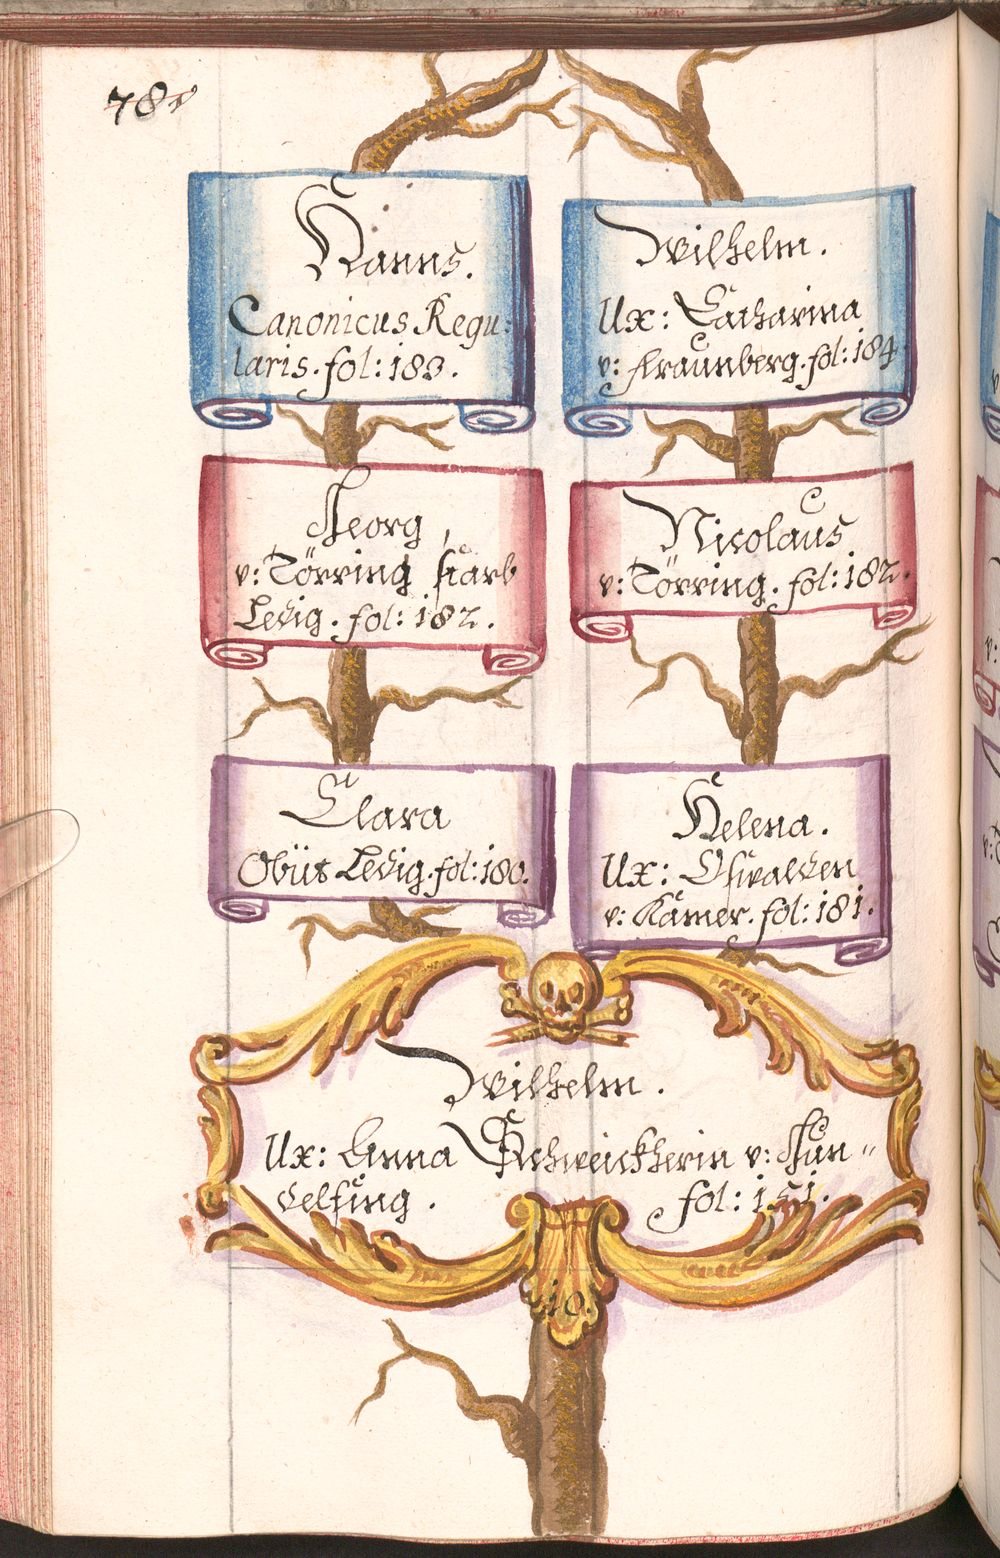 Hanns.
Canonicus Regu:
laris. fol: 183.
Wilhelm.
Ux: Catharina
v: Fraunberg. fol: 184.
Georg,
v: Törring starb
Ledig. fol: 182.
Nicolaus
v: Törring. fol: 182.
Clara
Obiit Ledig. fol: 180.
Helena.
Ux: Oswalden
v: Kämer. fol: 181.
Wilhelm.
Ux: Anna Schweickherin v: Thun"
delfing.
fol: 151.
10.